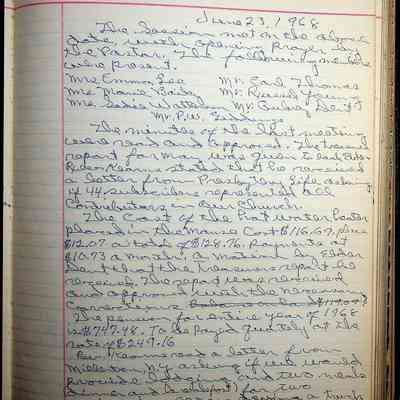 June 23, 1968
The Session met on the above
date, with opening prayer by
the Pastor. The following members
were present.
Mrs Emma Lee Mr. Earl Thomas
Mrs Marie Mr. Russel Young
Mrs. Sadie Mr. Quby Dent
Mr. P.W. Giddings
The minutes of the last meeting
were read and approved. The treasure
report for May was given to each Elder.
Rev. Kearns stated that he received
a letter from Presbyterian Life asking
if 44 subscribers represented all
Contributors in Our Church.
The Cost of the Hot water heater
placed in the Manse Cost $116.69, plus
$12.07 a total of $128.76. Payments at
$10.73 a month. a motion by Elder
Dent that the treasurers report be
received. The report was received
and approved with the necessary
Correction.
The pension for entire year of 1968
is $747.48. To be payed quately at the
rate of $249.16
Rev. Kearns read a letter from
N.Y. asking if we would
provide lodging and two meals
dinner and breakfast) for two
a truck